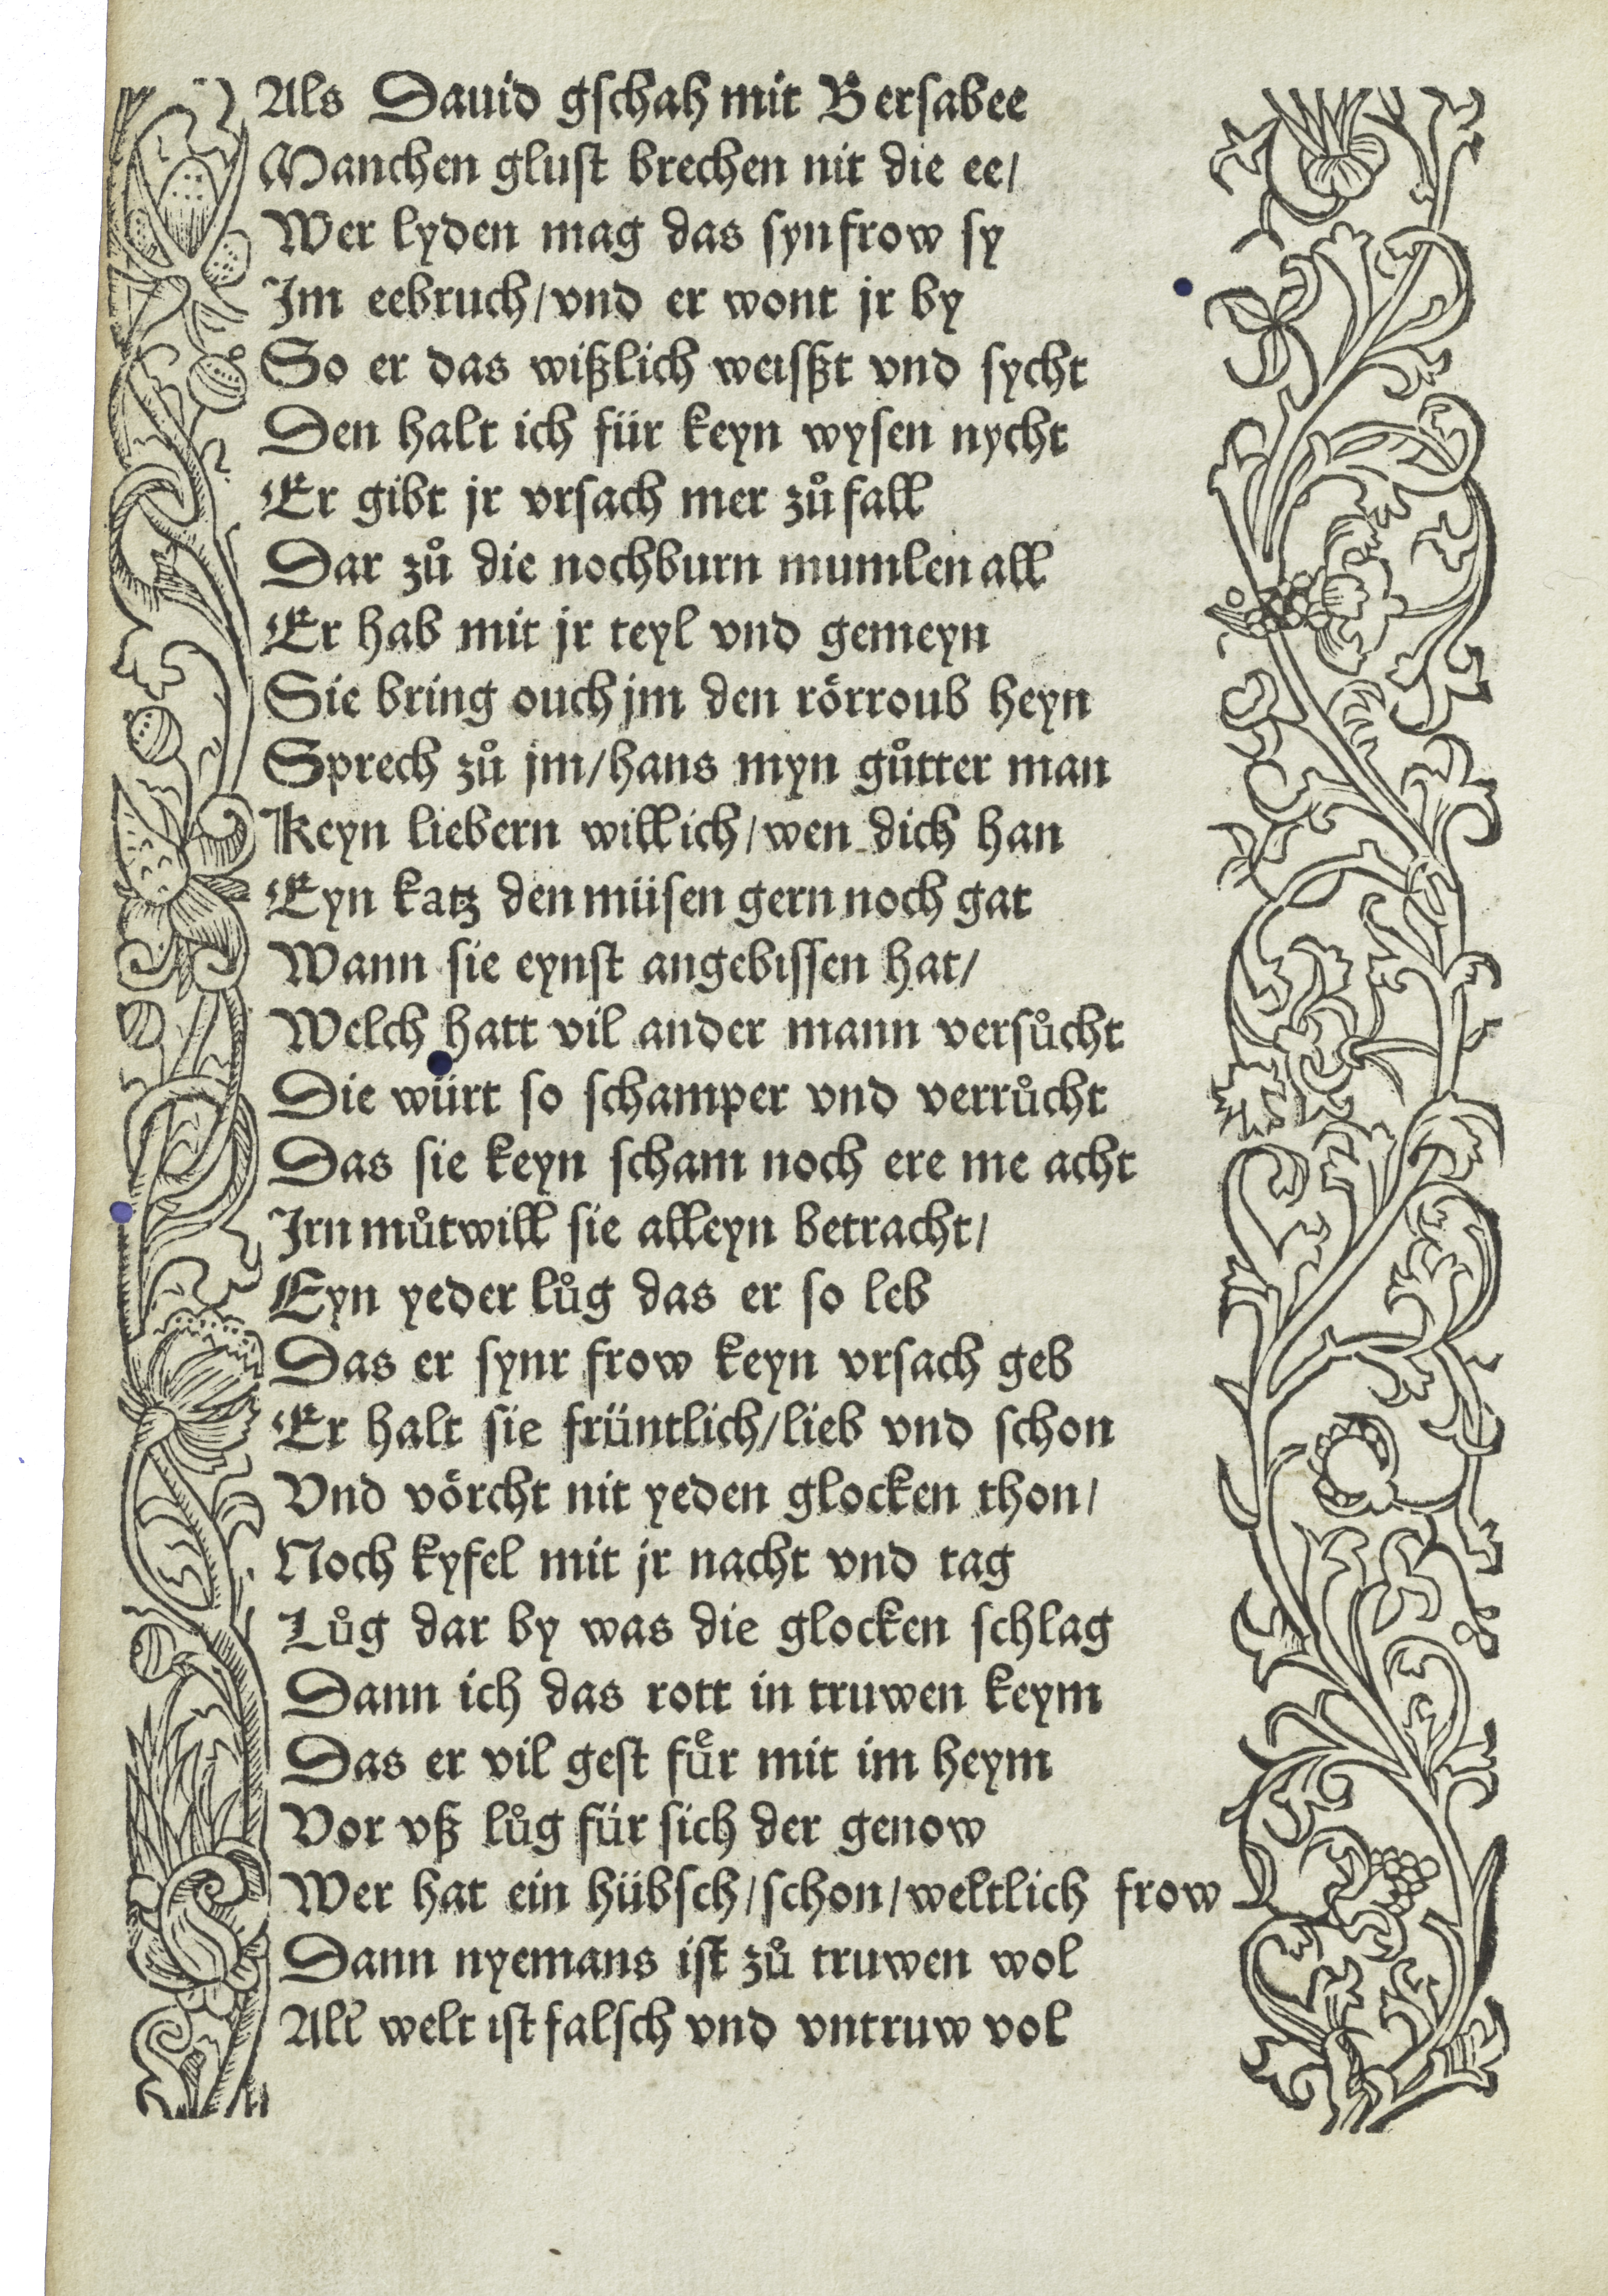 Als Dauid gschah mit Bersabee
Manchen glust brechen nit die ee/
Wer lyden mag das syn frow sy
Im eebruch/vnd er wont jr by
So er das wißlich weisßt vnd sycht
Den halt ich für keyn wysen nycht
Er gibt jr vrsach mer zů fall
Dar zů die nochburn mumlen all
Er hab mit jr teyl vnd gemeyn
Sie bring ouch jm den rörroub heyn
Sprech zů jm/hans myn gůtter man
Keyn liebern will ich/wen dich han
Eyn katz den müsen gern noch gat
Wann sie eynst angebissen hat/
Welch hatt vil ander mann versůcht
Die würt so schamper vnd verrůcht
Das sie keyn scham noch ere me acht
Irn můtwill sie alleyn betracht/
Eyn yeder lůg das er so leb
Das er synr frow keyn vrsach geb
Er halt sie früntlich/lieb vnd schon
Vnd vörcht nit yeden glocken thon/
Noch kyfel mit jr nacht vnd tag
Lůg dar by was die glocken schlag
Dann ich das rott in truwen keym
Das er vil gest fuͤr mit im heym
Vor vß lůg für sich der genow
Wer hat ein hübsch/schon/weltlich frow
Dann nyemans ist zů truwen wol
All welt ist falsch vnd vntruw vol